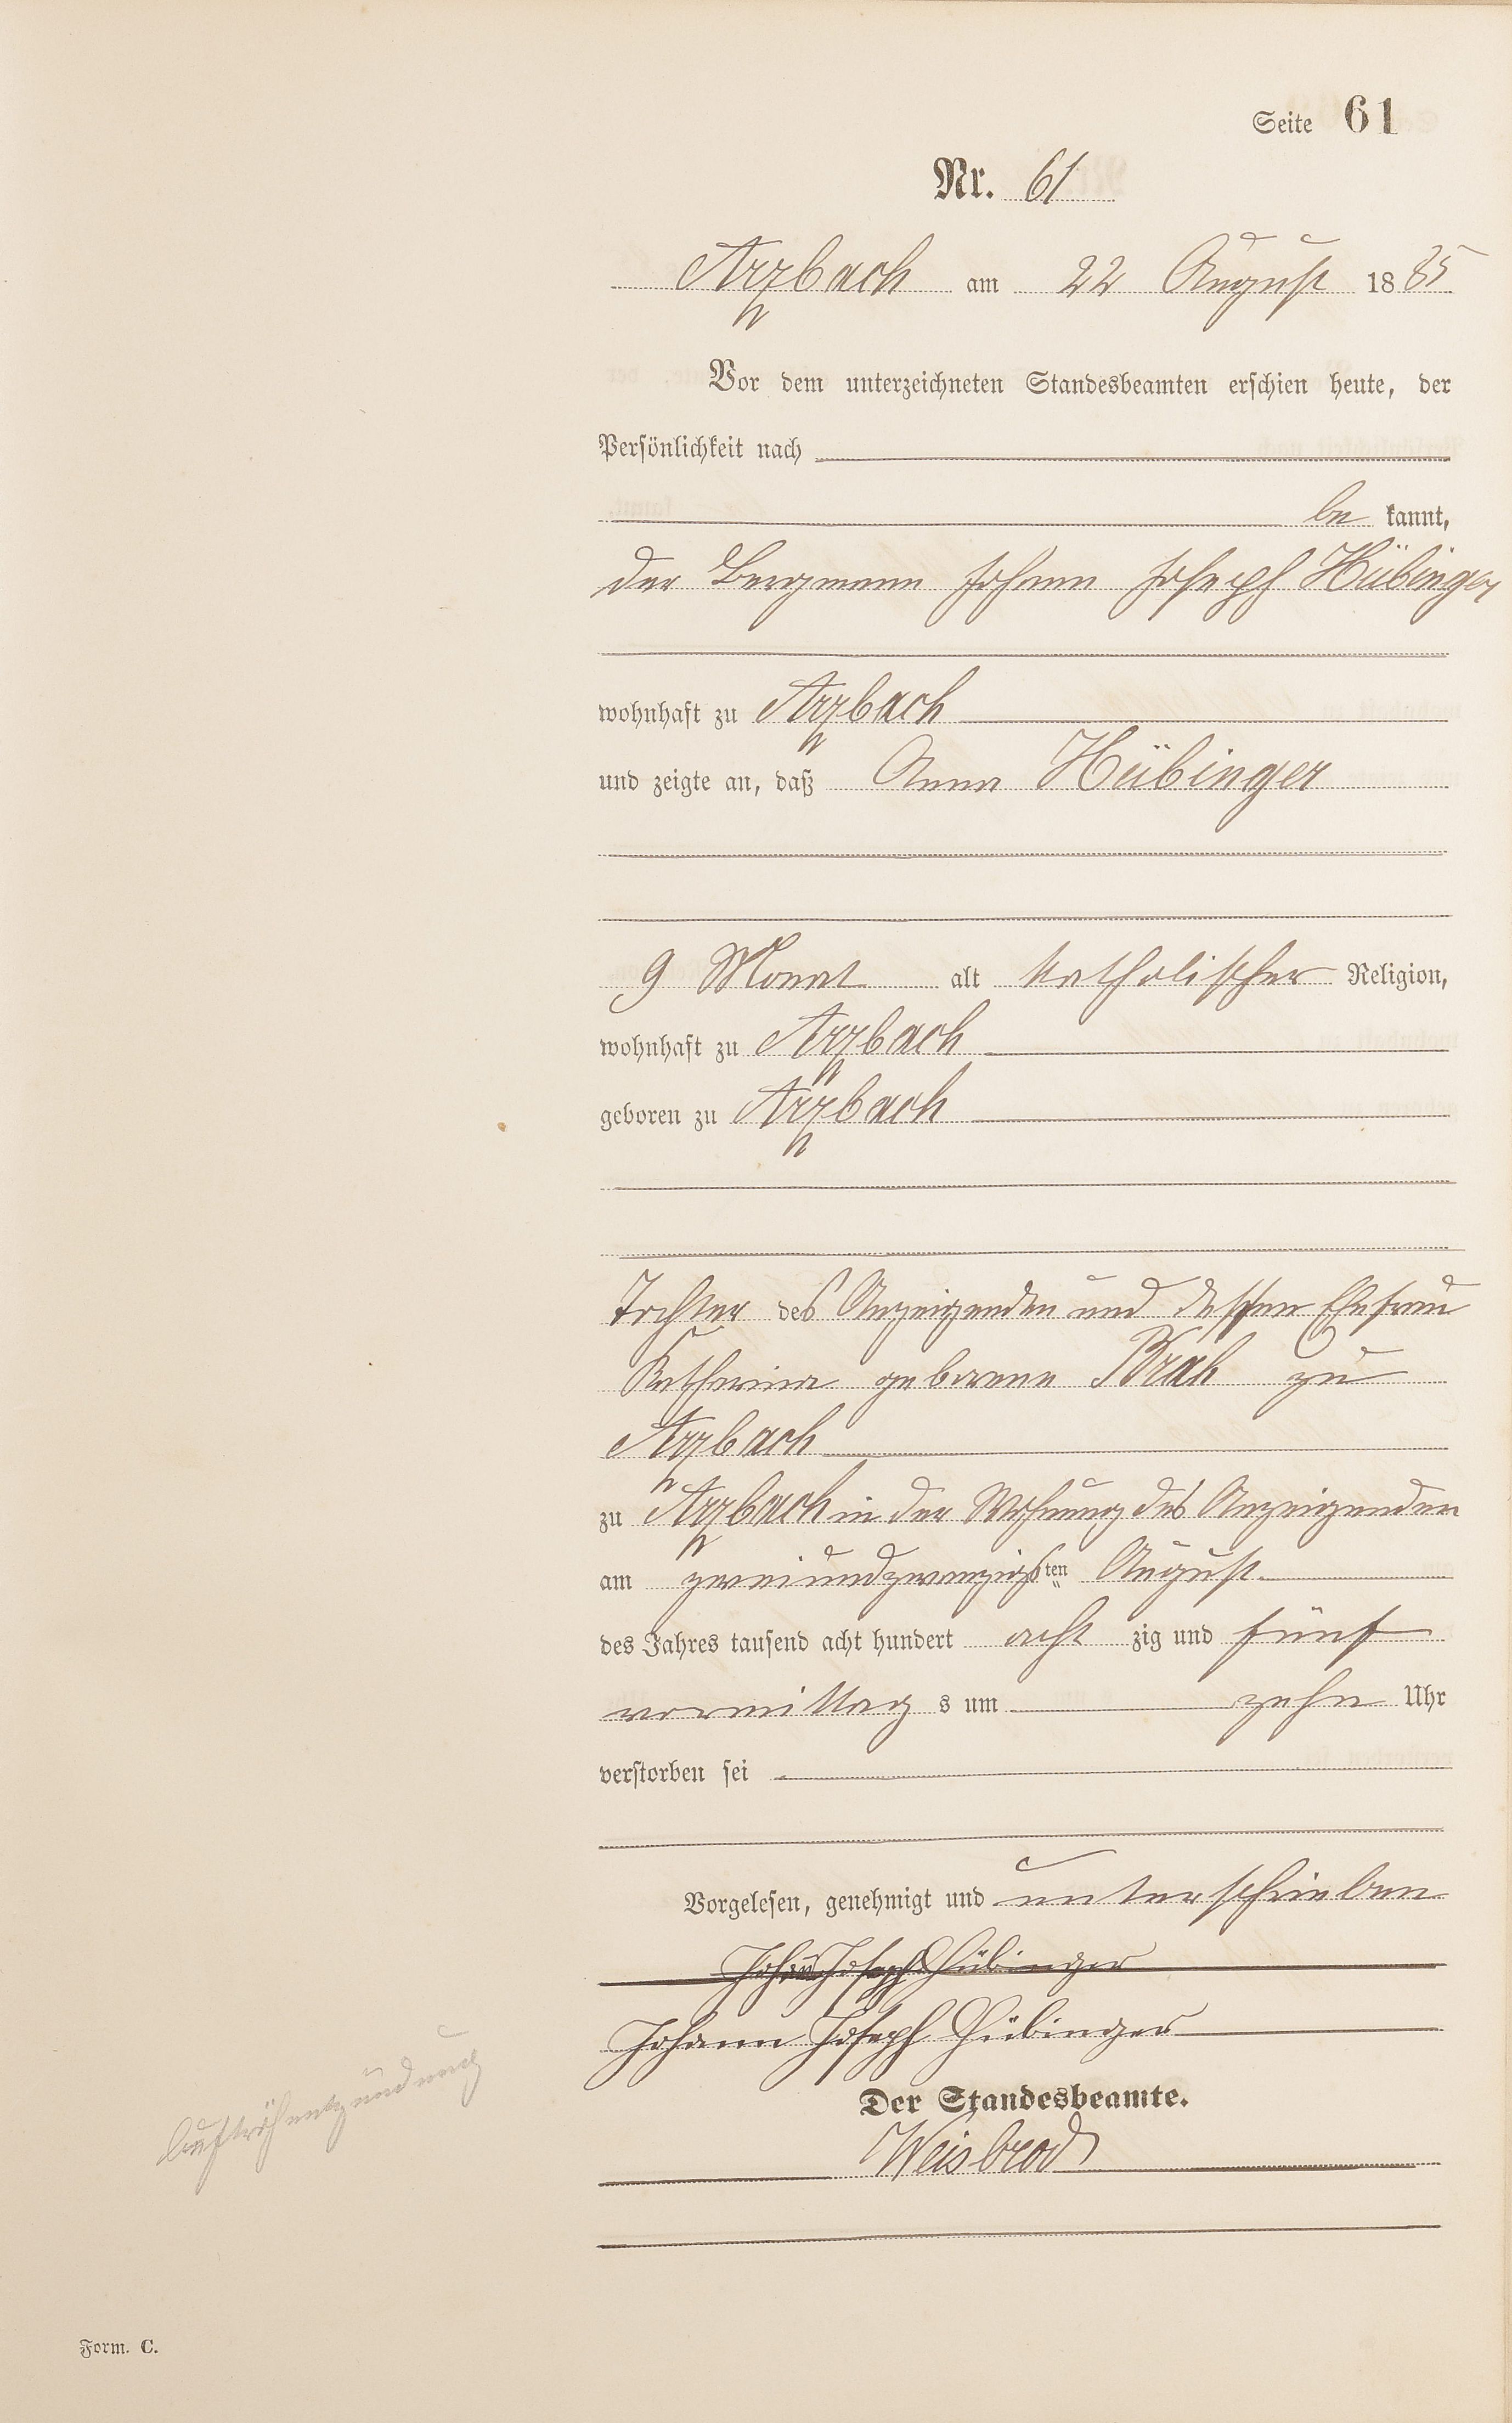 Seite 61
Nr. 61
Arzbach am 22 August 1885
Vor dem unterzeichneten Standesbeamten erschien heute, der
Persönlichkeit nach
be kannt,
der Bergmann Johann Joseph Hübinger
wohnhaft zu Arzbach
und zeigte an, daß Anna Hübinger
9 Monat alt katholischer Religion,
wohnhaft zu Arzbach
geboren zu Arzbach
Tochter des Anzeigenden und dessen Ehefrau
Katharina geborene Brah zu
Arzbach
zu Arzbach in der Wohnung des Anzeigenden
am zweiundzwanzigsten August
des Jahres tausend acht hundert acht zig und fünf
vormittag s um zehn Uhr
verstorben sei
Vorgelesen, genehmigt und unterschrieben
Johann Joseph Hübinger
Johann Joseph Hübinger
Luftröhrentzündung
Der Standesbeamte.
Weisbrod
Form. C.